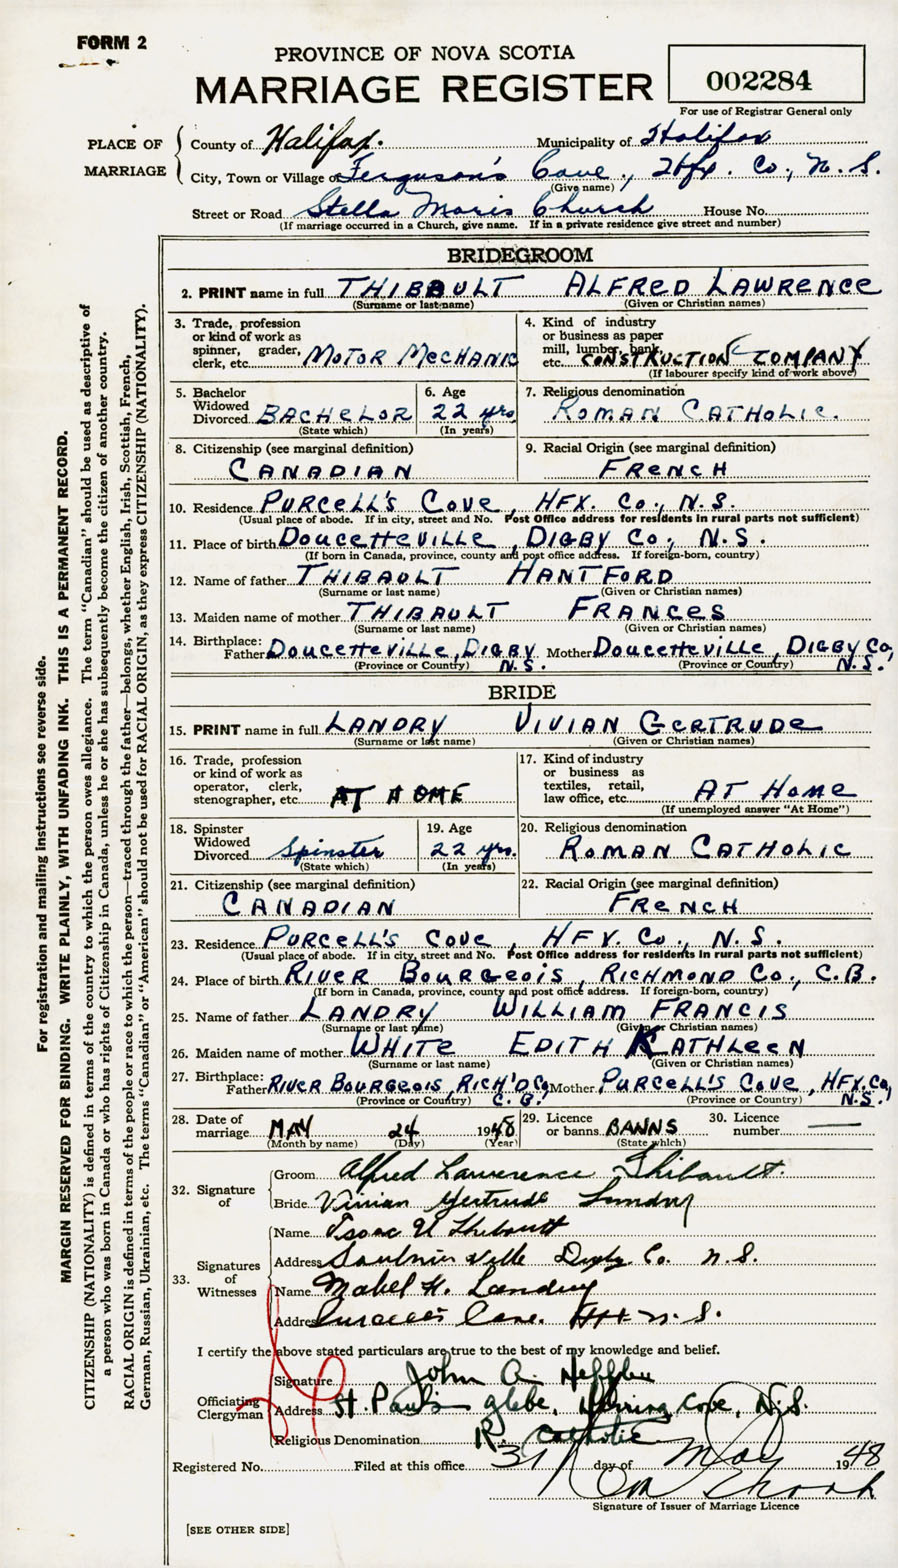 FORM 2
PROVINCE OF NOVA SCOTIA
MARRIAGE REGISTER
002284
For use of Registrar General only
PLACE OF MARRIAGE
County of Halifax. Municipality of Halifax
City, Town or Village of Ferguson's Cove, Hfx. Co., N.S.
(Give name)
Street or Road Stella Maris Church House No.
(If marriage occurred in a Church, give name. If in a private residence give street and number)
BRIDEGROOM
2. PRINT name in full THIBAULT ALFRED LAWRENCE
(Surname or last name) (Given or Christian names)
3. Trade, profession or kind of work as spinner, grader, clerk, etc. MOTOR MECHANIC
4. Kind of industry or business as paper mill, lumber, bank, etc. CONSTRUCTION COMPANY
(If labourer specify kind of work above)
5. Bachelor Widowed Divorced BACHELOR
(State which)
6. Age 22 yrs
(In years)
7. Religious denomination ROMAN CATHOLIC.
8. Citizenship (see marginal definition) CANADIAN
9. Racial Origin (see marginal definition) FRENCH
10. Residence PURCELL'S COVE, HFX. CO., N.S.
(Usual place of abode. If in city, street and No. Post Office address for residents in rural parts not sufficient)
11. Place of birth DOUCETTEVILLE, DIGBY CO., N.S.
(If born in Canada, province, county and post office address. If foreign-born, country)
12. Name of father THIBAULT HANTFORD
(Surname or last name) (Given or Christian names)
13. Maiden name of mother THIBAULT FRANCES
(Surname or last name) (Given or Christian names)
14. Birthplace: Father DOUCETTEVILLE, DIGBY N.S. Mother DOUCETTEVILLE, DIGBY CO, N.S.
(Province or Country) (Province or Country)
BRIDE
15. PRINT name in full LANDRY VIVIAN GERTRUDE
(Surname or last name) (Given or Christian names)
16. Trade, profession or kind of work as operator, clerk, stenographer, etc. AT HOME
17. Kind of industry or business as textiles, retail, law office, etc. AT HOME
(If unemployed answer "At Home")
18. Spinster Widowed Divorced Spinster
(State which)
19. Age 22 yrs.
(In years)
20. Religious denomination ROMAN CATHOLIC
21. Citizenship (see marginal definition) CANADIAN
22. Racial Origin (see marginal definition) FRENCH
23. Residence PURCELL'S COVE, HFX. CO., N.S.
(Usual place of abode. If in city, street and No. Post Office address for residents in rural parts not sufficient)
24. Place of birth RIVER BOURGEOIS, RICHMOND CO., C.B.
(If born in Canada, province, county and post office address. If foreign-born, country)
25. Name of father LANDRY WILLIAM FRANCIS
(Surname or last name) (Given or Christian names)
26. Maiden name of mother WHITE EDITH KATHLEEN
(Surname or last name) (Given or Christian names)
27. Birthplace: Father RIVER BOURGEOIS, RICH'D CO, C.B. Mother PURCELL'S COVE, HFX. CO, N.S.
(Province or Country) (Province or Country)
28. Date of marriage MAY 24 1948
(Month by name) (Day) (Year)
29. Licence or banns BANNS
(State which)
30. Licence number
32. Signature of
Groom Alfred Lawrence Thibault.
Bride Vivian Gertrude Landry
33. Signatures of Witnesses
Name Isaac U Thibault
Address Saulnierville Digby Co. N.S.
Name Mabel H. Landry
Address Purcell's Cove. Hfx N.S.
I certify the above stated particulars are true to the best of my knowledge and belief.
Officiating Clergyman
Signature John A.
Address St. Paul's glebe, Herring Cove, N.S.
Religious Denomination R. Catholic
Registered No. Filed at this office 31 day of May 1948
Signature of Issuer of Marriage Licence
[SEE OTHER SIDE]
For registration and mailing instructions see reverse side.
MARGIN RESERVED FOR BINDING. WRITE PLAINLY, WITH UNFADING INK. THIS IS A PERMANENT RECORD.
CITIZENSHIP (NATIONALITY) is defined in terms of the country to which the person owes allegiance. The term "Canadian" should be used as descriptive of
a person who was born in Canada or who has rights of Citizenship in Canada, unless he or she has subsequently become the citizen of another country.
RACIAL ORIGIN is defined in terms of the people or race to which the person—traced through the father—belongs, whether English, Irish, Scottish, French,
German, Russian, Ukrainian, etc. The terms "Canadian" or "American" should not be used for RACIAL ORIGIN, as they express CITIZENSHIP (NATIONALITY).